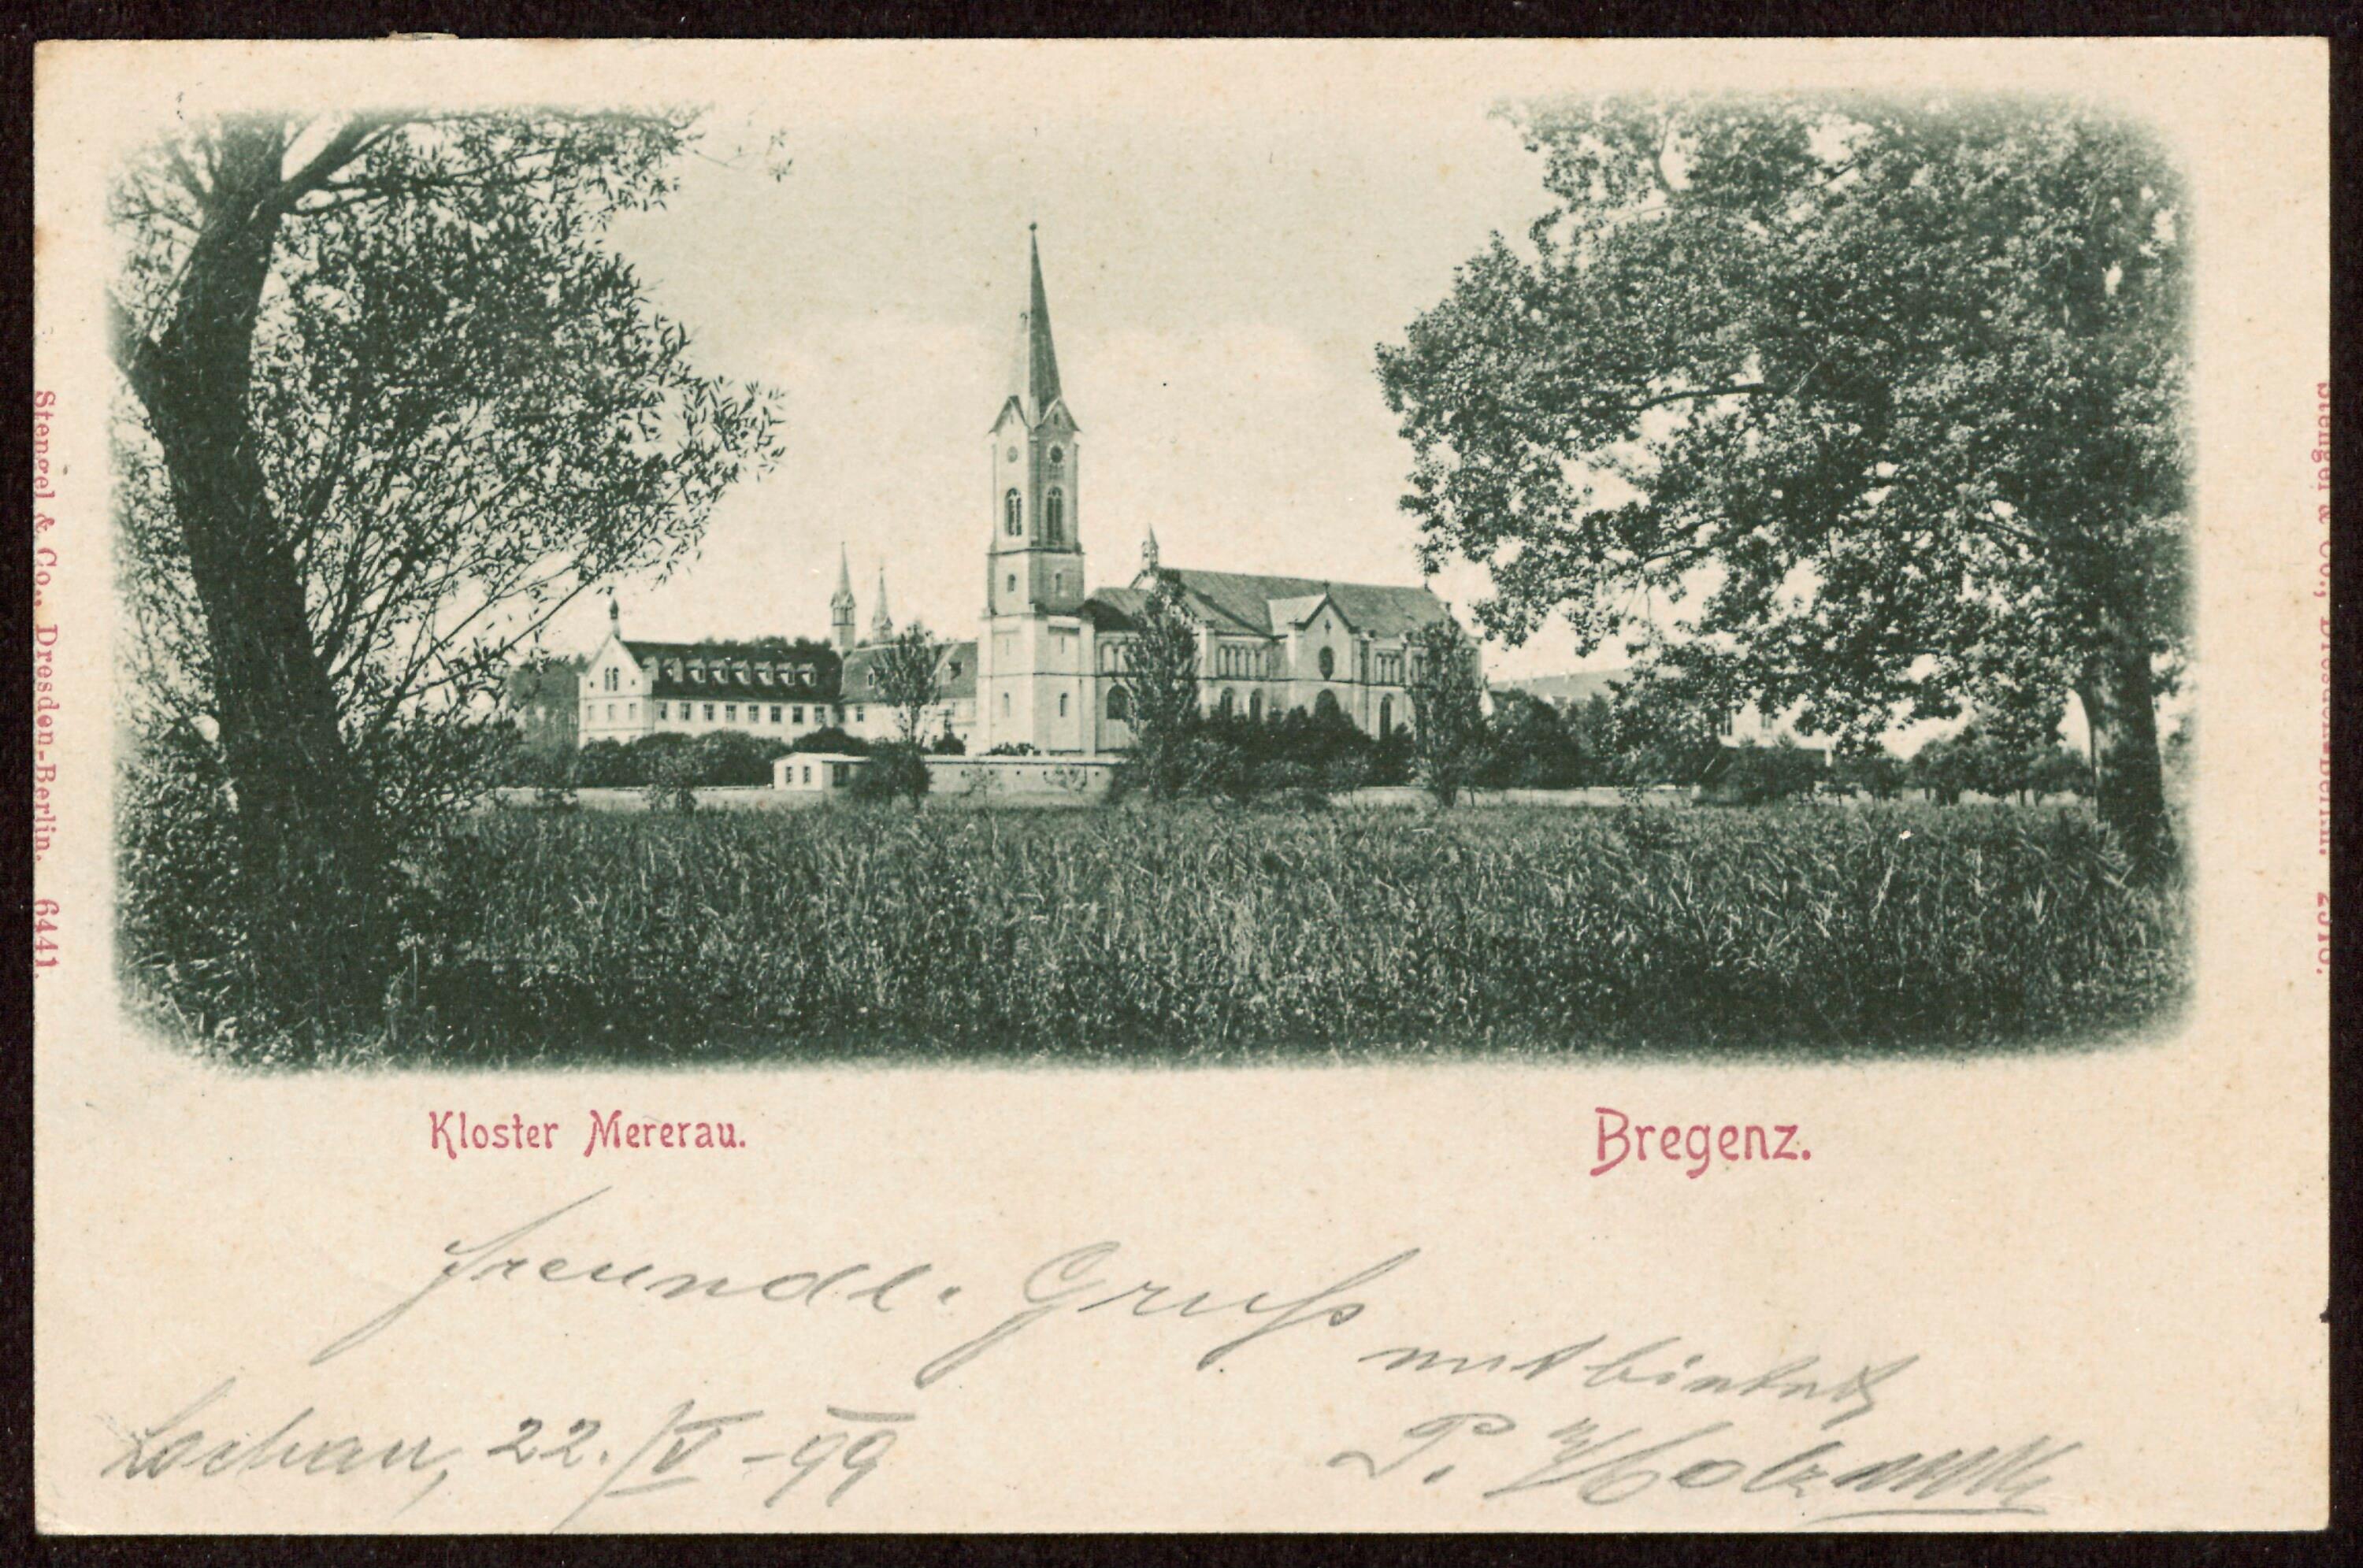 Stengel & Co., Dresden-Berlin. 6441.
Stengel & Co., Dresden-Berlin.
Kloster Mererau.
Bregenz.
freundl. Gruß
Lochau, 22./V - 99
P.